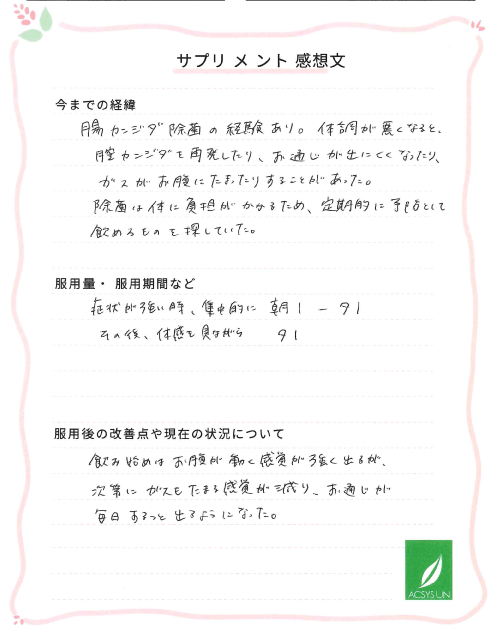 サプリメント感想文
今までの経緯
腸カンジダ除菌の経験あり。体調が悪くなると、
膣カンジダを再発したり、お通じが出にくくなったり、
ガスがお腹にたまったりすることがあった。
除菌は体に負担がかかるため、定期的に予防として
飲めるものを探していた。
服用量・服用期間など
症状が強い時、集中的に 朝1 - 夕1
その後、体感を見ながら 夕1
服用後の改善点や現在の状況について
飲み始めはお腹が動く感覚が強く出るが、
次第にガスもたまる感覚が減り、お通じが
毎日するっと出るようになった。
ACSYSUN